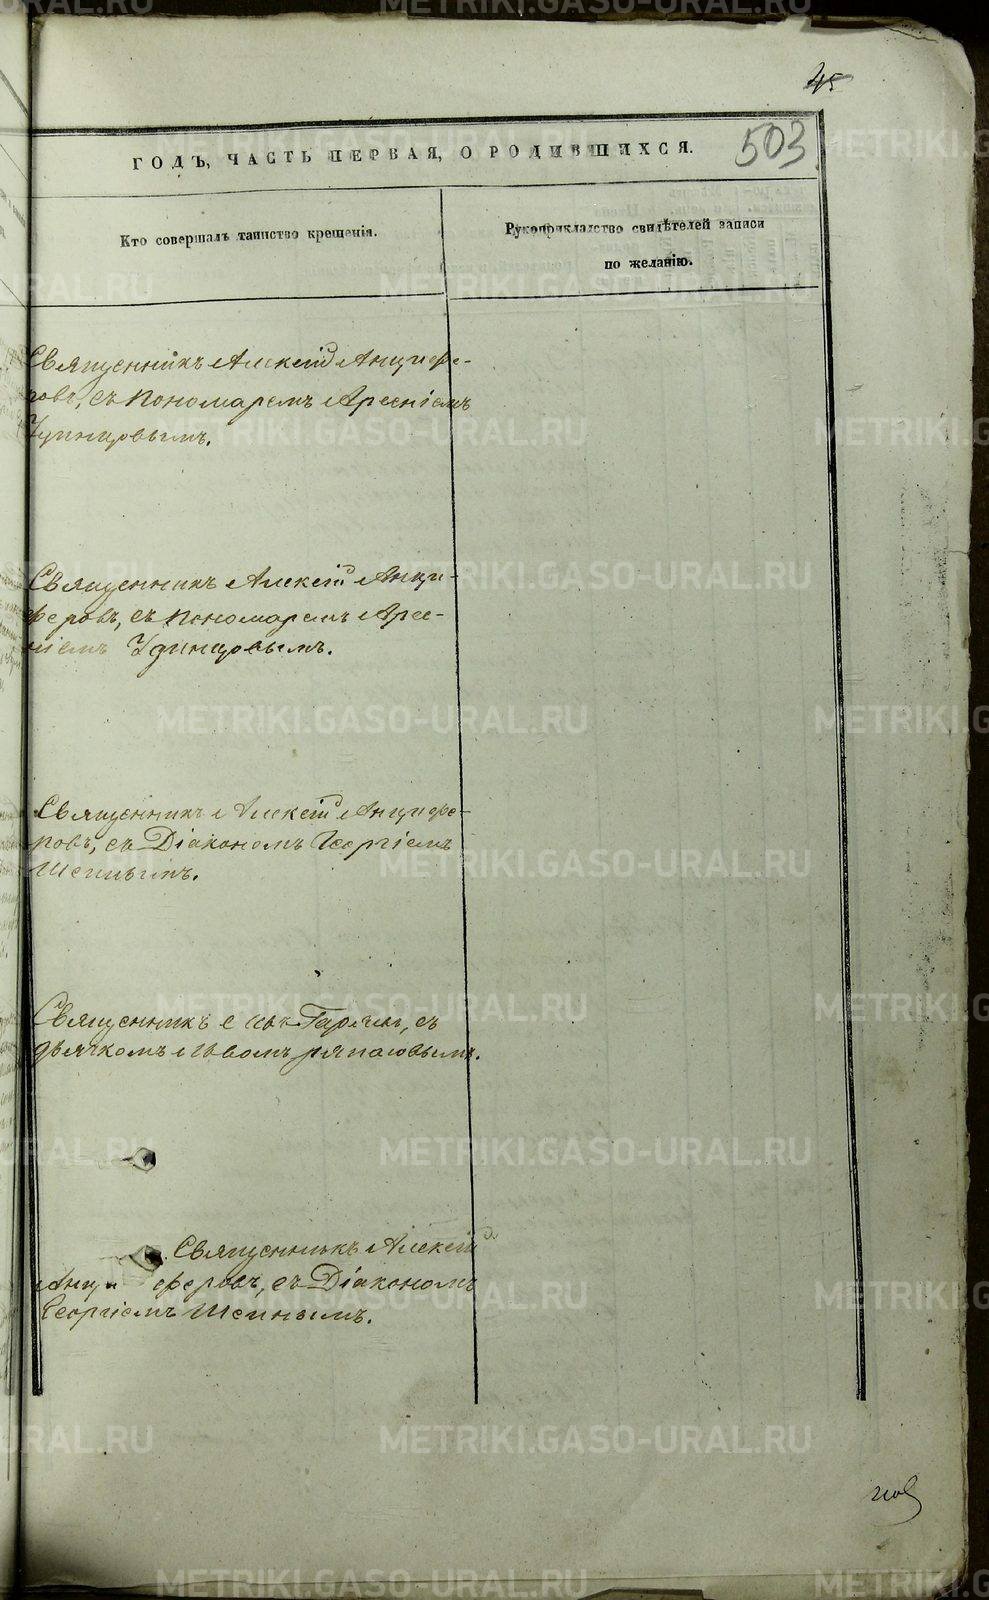 45
503
ГОДЪ, ЧАСТЬ ПЕРВАЯ, О РОДИВШИХСЯ.
Кто совершалъ таинство крещенія.
Рукоприкладство свидѣтелей записи
по желанію.
Священникъ Алексій Анцифе-
ровъ, съ пономаремъ Арсеніемъ
Удинцовымъ.
Священникъ Алексій Анци-
феровъ, съ пономаремъ Арсе-
ніемъ Удинцовымъ.
Священникъ Алексій Анцифе-
ровъ, съ Діакономъ Георгіемъ
Шеинымъ.
Священникъ съ
дьячкомъ
Священникъ Алексій
Анциферовъ, съ Діакономъ
Георгіемъ Шеинымъ.
METRIKI.GASO-URAL.RU